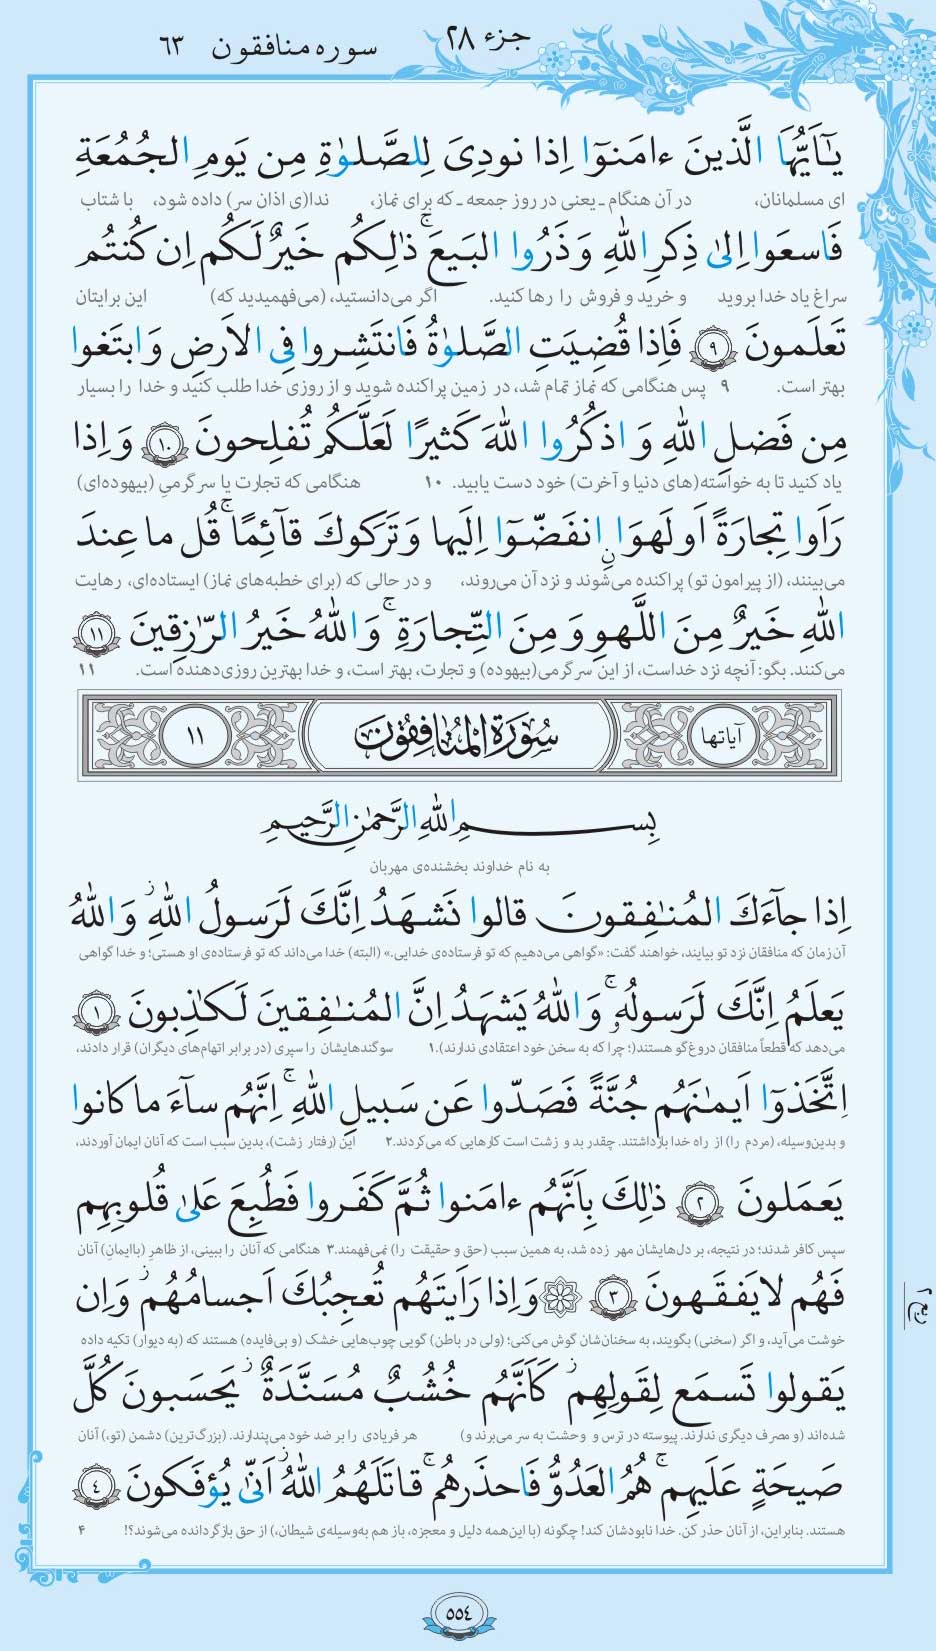 جزء ۲۸
سوره منافقون ۶۳
يٰٓاَيُّهَا الَّذينَ ءامَنوٓا اِذا نودِىَ لِلصَّلوٰةِ مِن يَومِ الجُمُعَةِ
ای مسلمانان، در آن هنگام ـ یعنی در روز جمعه ـ که برای نماز، ندا(ی اذان سر) داده شود، با شتاب
فَاسعَوا اِلىٰ ذِكرِ اللّٰهِ وَ ذَرُوا البَيعَ ۚ ذٰلِكُم خَيرٌ لَكُم اِن كُنتُم
سراغ یاد خدا بروید و خرید و فروش را رها کنید. اگر می‌دانستید، (می‌فهمیدید که) این برایتان
تَعلَمونَ ﴿۹﴾ فَاِذا قُضِيَتِ الصَّلوٰةُ فَانتَشِروا فِى الاَرضِ وَ ابتَغوا
بهتر است. ۹ پس هنگامی که نماز تمام شد، در زمین پراکنده شوید و از روزی خدا طلب کنید و خدا را بسیار
مِن فَضلِ اللّٰهِ وَ اذكُرُوا اللّٰهَ كَثيرًا لَعَلَّكُم تُفلِحونَ ﴿۱۰﴾ وَ اِذا
یاد کنید تا به خواسته(های دنیا و آخرت) خود دست یابید. ۱۰ هنگامی که تجارت یا سرگرمیِ (بیهوده‌ای)
رَاَوا تِجارَةً اَو لَهوًا انفَضّوٓا اِلَيها وَ تَرَكوكَ قآئِمًا ۚ قُل ما عِندَ
می‌بینند، (از پیرامون تو) پراکنده می‌شوند و نزد آن می‌روند، و در حالی که (برای خطبه‌های نماز) ایستاده‌ای، رهایت
اللّٰهِ خَيرٌ مِنَ اللَّهوِ وَ مِنَ التِّجارَةِ ۚ وَ اللّٰهُ خَيرُ الرّٰزِقينَ ﴿۱۱﴾
می‌کنند. بگو: آنچه نزد خداست، از این سرگرمی(بیهوده) و تجارت، بهتر است، و خدا بهترین روزی‌دهنده است. ۱۱
آیاتها سُورَةُ المُنَافِقُونَ ۱۱
بِسمِ اللّٰهِ الرَّحمٰنِ الرَّحيمِ
به نام خداوند بخشنده‌ی مهربان
اِذا جآءَكَ المُنٰفِقونَ قالوا نَشهَدُ اِنَّكَ لَرَسولُ اللّٰهِ ۘ وَ اللّٰهُ
آن زمان که منافقان نزد تو بیایند، خواهند گفت: «گواهی می‌دهیم که تو فرستاده‌ی خدایی.» (البته) خدا می‌داند که تو فرستاده‌ی او هستی؛ و خدا گواهی
يَعلَمُ اِنَّكَ لَرَسولُهٗ ۚ وَ اللّٰهُ يَشهَدُ اِنَّ المُنٰفِقينَ لَكٰذِبونَ ﴿۱﴾
می‌دهد که قطعاً منافقان دروغ‌گو هستند(؛ چرا که به سخن خود اعتقادی ندارند).۱ سوگندهایشان را سپری (در برابر اتهام‌های دیگران) قرار دادند،
اِتَّخَذوٓا اَيمٰنَهُم جُنَّةً فَصَدّوا عَن سَبيلِ اللّٰهِ ۚ اِنَّهُم سآءَ ما كانوا
و بدین‌وسیله، (مردم را) از راه خدا بازداشتند. چقدر بد و زشت است کارهایی که می‌کردند.۲ این (رفتار زشت)، بدین سبب است که آنان ایمان آوردند،
يَعمَلونَ ﴿۲﴾ ذٰلِكَ بِاَنَّهُم ءامَنوا ثُمَّ كَفَروا فَطُبِعَ عَلىٰ قُلوبِهِم
سپس کافر شدند؛ در نتیجه، بر دل‌هایشان مهر زده شد، به همین سبب (حق و حقیقت را) نمی‌فهمند.۳ هنگامی که آنان را ببینی، از ظاهرِ (باایمانِ) آنان
فَهُم لا يَفقَهونَ ﴿۳﴾ ۞ وَ اِذا رَاَيتَهُم تُعجِبُكَ اَجسامُهُم ۖ وَ اِن
خوشت می‌آید، و اگر (سخنی) بگویند، به سخنان‌شان گوش می‌کنی؛ (ولی در باطن) گویی چوب‌هایی خشک (و بی‌فایده) هستند که (به دیوار) تکیه داده
ربع ۲
يَقولوا تَسمَع لِقَولِهِم ۖ كَاَنَّهُم خُشُبٌ مُسَنَّدَةٌ ۖ يَحسَبونَ كُلَّ
شده‌اند (و مصرف دیگری ندارند. پیوسته در ترس و وحشت به سر می‌برند و) هر فریادی را بر ضد خود می‌پندارند. (بزرگ‌ترین) دشمن (تو،) آنان
صَيحَةٍ عَلَيهِم ۚ هُمُ العَدُوُّ فَاحذَرهُم ۚ قاتَلَهُمُ اللّٰهُ ۖ اَنّىٰ يُؤفَكونَ ﴿٤﴾
هستند. بنابراین، از آنان حذر کن. خدا نابودشان کند! چگونه (با این‌همه دلیل و معجزه، باز هم به‌وسیله‌ی شیطان،) از حق بازگردانده می‌شوند؟! ۴
٥٥٤